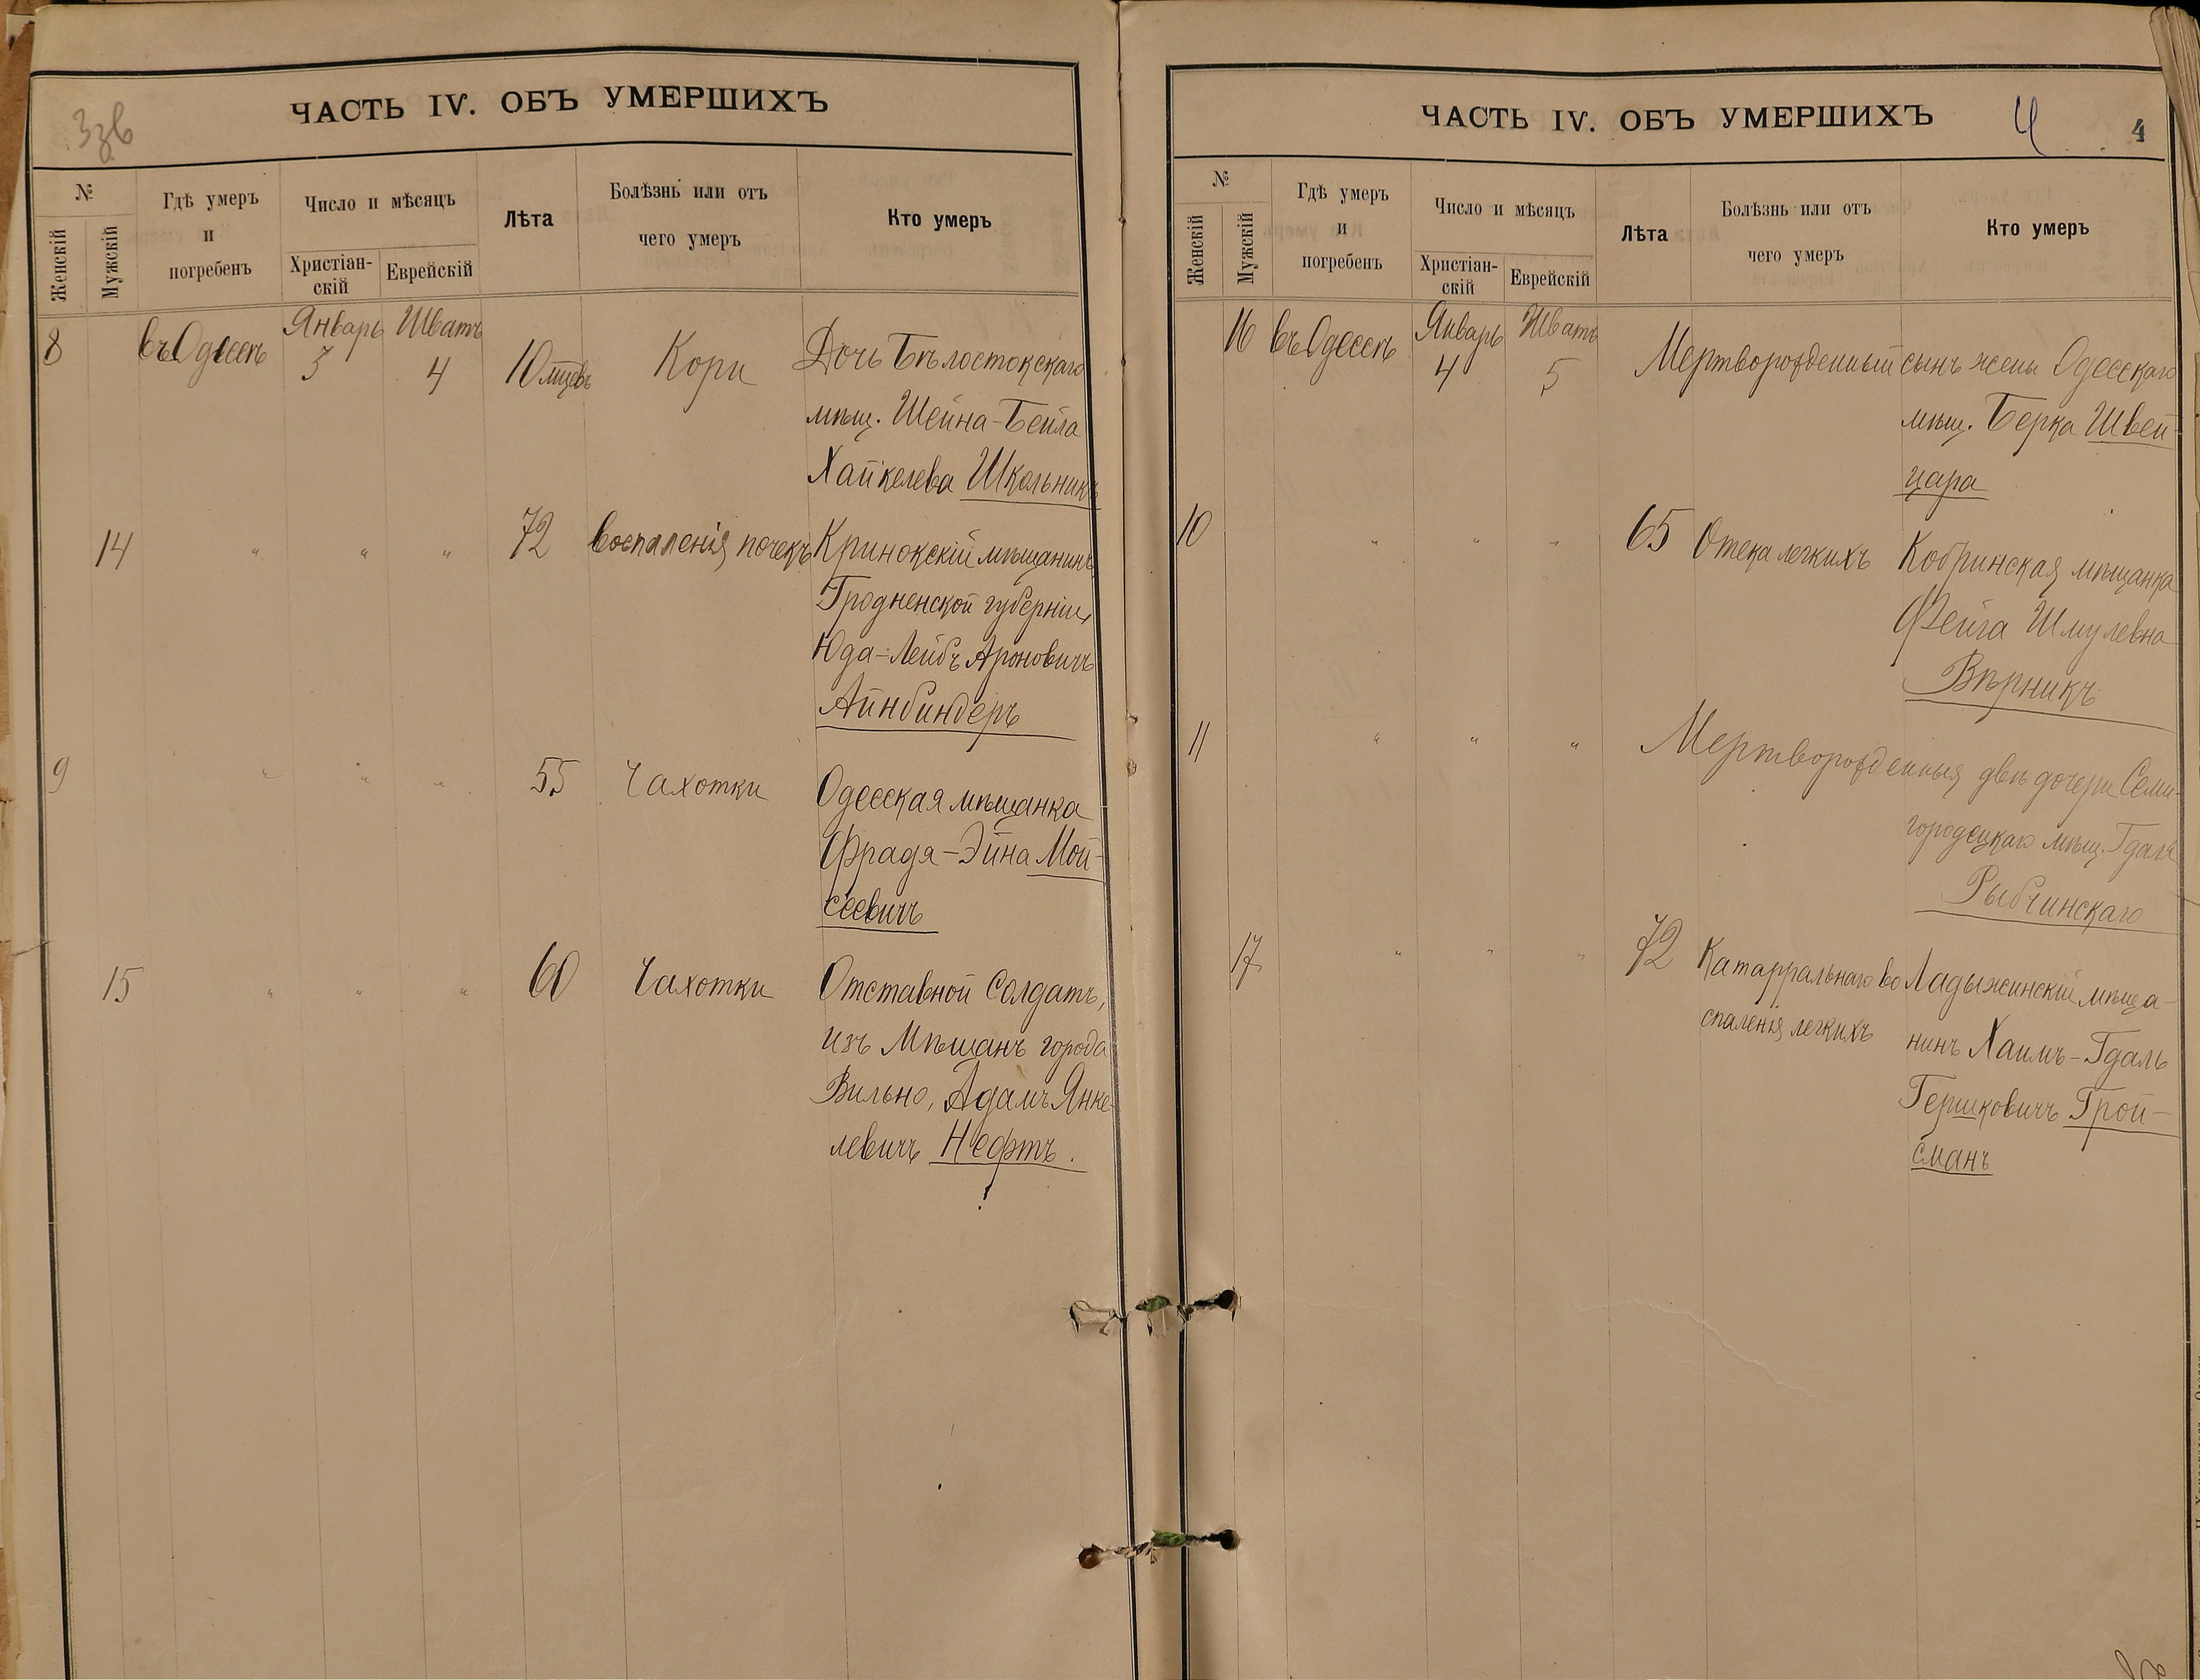 ЧАСТЬ IV. ОБЪ УМЕРШИХЪ
№
Женскій
Мужскій
Гдѣ умеръ
и
погребенъ
Число и мѣсяцъ
Христіан-
скій
Еврейскій
Лѣта
Болѣзнь или отъ
чего умеръ
Кто умеръ
8 въ Одессѣ Январь 3 Шватъ 4 10 мцевъ Кори Дочь Бѣлостокскаго
мѣщ. Шейна-Бейла
Хайкелева Школьникъ
14 " " " 72 воспаленія почекъ Кринокскій мѣщанинъ
Гродненской губерніи,
Юда-Лейбъ Ароновичъ
Айнбиндеръ
9 " " " 55 Чахотки Одесская мѣщанка
Фрадя-Эйна Мой-
сеевичъ
15 " " " 60 Чахотки Отставной Солдатъ,
изъ Мѣщанъ города
Вильно, Адамъ Янке-
левичъ Нефтъ.
ЧАСТЬ IV. ОБЪ УМЕРШИХЪ
4 4
№
Женскій
Мужскій
Гдѣ умеръ
и
погребенъ
Число и мѣсяцъ
Христіан-
скій
Еврейскій
Лѣта
Болѣзнь или отъ
чего умеръ
Кто умеръ
16 въ Одессѣ Январь 4 Шватъ 5 Мертворожденный сынъ жены Одесскаго
мѣщ. Берка Швей-
цара
10 " " " 65 Отека легкихъ Кобринская мѣщанка
Фейга Шмулевна
Вѣрникъ
11 " " " Мертворожденныя двѣ дочери Семи-
городецкаго мѣщ. Гдаля
Рыбчинскаго
17 " " " 72 Катарральнаго во Ладыжинскій мѣща-
спаленія легкихъ нинъ Хаимъ-Гдаль
Гершковичъ Грой-
сманъ